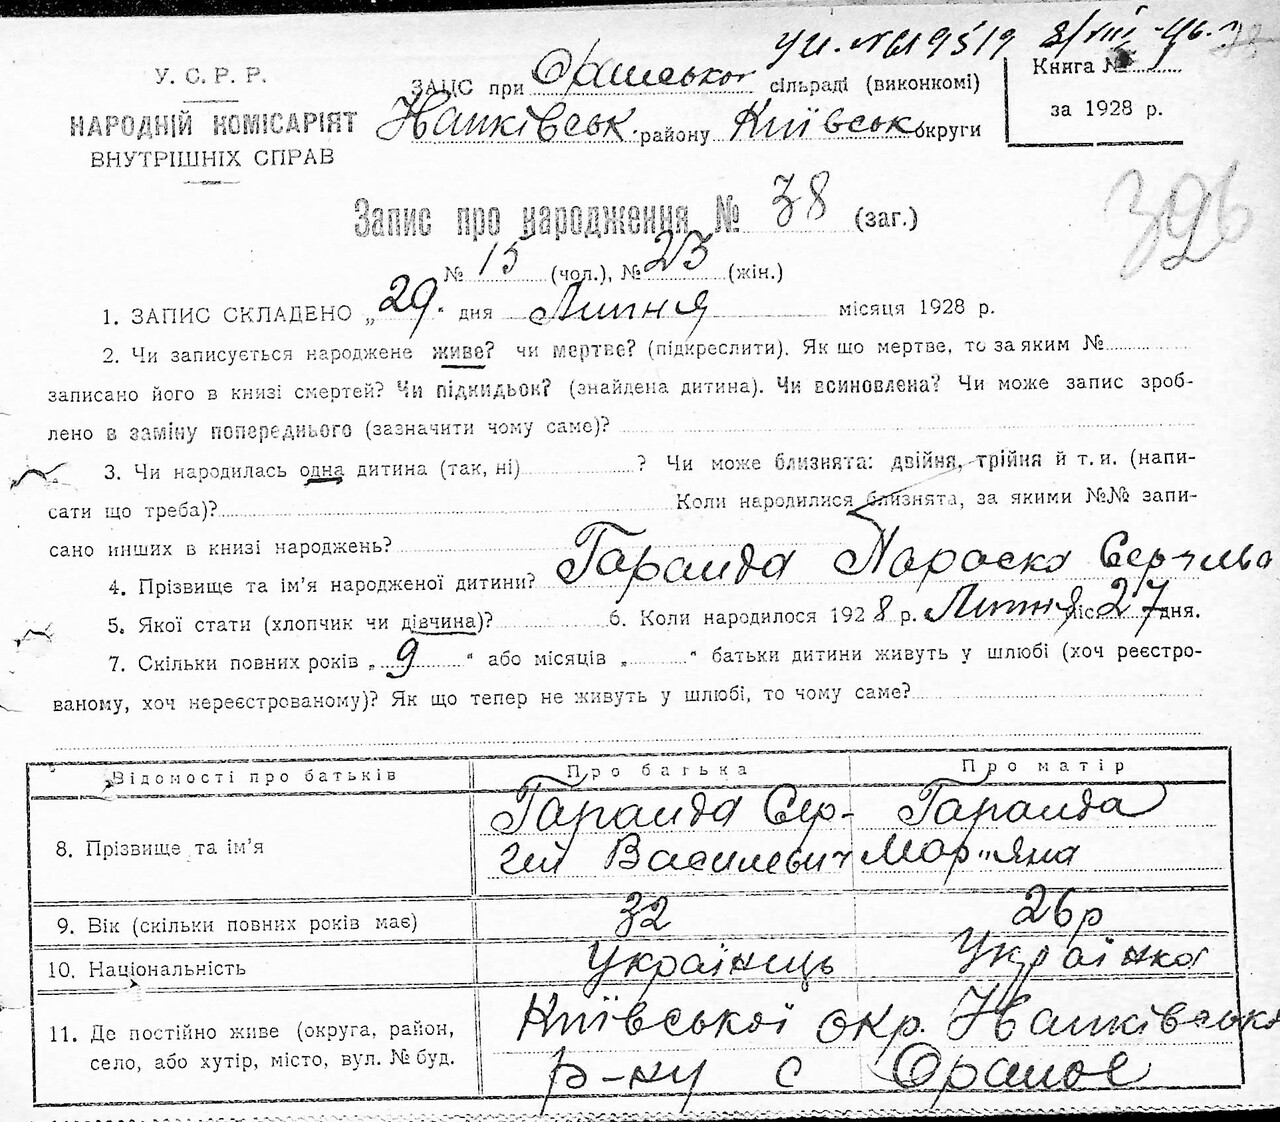 УИ. № 619519 8/VIII-46 г.
У. С. Р. Р.
НАРОДНІЙ КОМІСАРІЯТ
ВНУТРІШНІХ СПРАВ
ЗАПИС при Оранської сільраді (виконкомі)
Іванківськ. району Київськ округи
Книга №
за 1928 р.
396
Запис про народження № 38 (заг.)
№ 15 (чол.), № 23 (жін.)
1. ЗАПИС СКЛАДЕНО „29" дня Липня місяця 1928 р.
2. Чи записується народжене живе? чи мертве? (підкреслити). Як що мертве, то за яким №
записано його в книзі смертей? Чи підкидьок? (знайдена дитина). Чи всиновлена? Чи може запис зроб-
лено в заміну попереднього (зазначити чому саме)?
3. Чи народилась одна дитина (так, ні) ? Чи може близнята: двійня, трійня й т. и. (напи-
сати що треба)? Коли народилися близнята, за якими №№ запи-
сано инших в книзі народжень?
4. Прізвище та ім'я народженої дитини? Гаранда Параска
5. Якої стати (хлопчик чи дівчина)? 6. Коли народилося 1928 р. Липня міс. 27 дня.
7. Скільки повних років „9" або місяців „ " батьки дитини живуть у шлюбі (хоч реєстро-
ваному, хоч нереєстрованому)? Як що тепер не живуть у шлюбі, то чому саме?
Відомості про батьків Про батька Про матір
8. Прізвище та ім'я Гаранда Сер- Гаранда
гій Василевич Мар"яна
9. Вік (скільки повних років має) 32 26 р
10. Національність Українець Українка
11. Де постійно живе (округа, район, Київської окр. Іванківсько
село, або хутір, місто, вул. № буд. р-ну с Оране